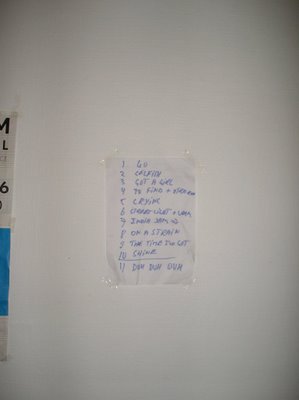 M
L
6
0
1 GO
2 CATFISH
3 GOT A GIRL
4 TO FIND +
5 CRYING
6 STREET +
7 INDIA
8 ON A STRAIN
9 THE TIME TO GET
10 SHINE
11 DUH DUH DUH